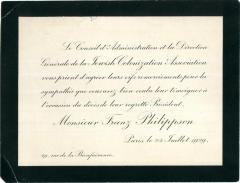 Le Conseil d'Administration et la Direction
Générale de la Jewish Colonization Association
vous prient d'agréer leurs vifs remerciements pour la
sympathie que vous avez bien voulu leur témoigner à
l'occasion du décès de leur regretté Président,
Monsieur Franz Philippson
Paris, le 25 Juillet 1929.
29, rue de la Bienfaisance.